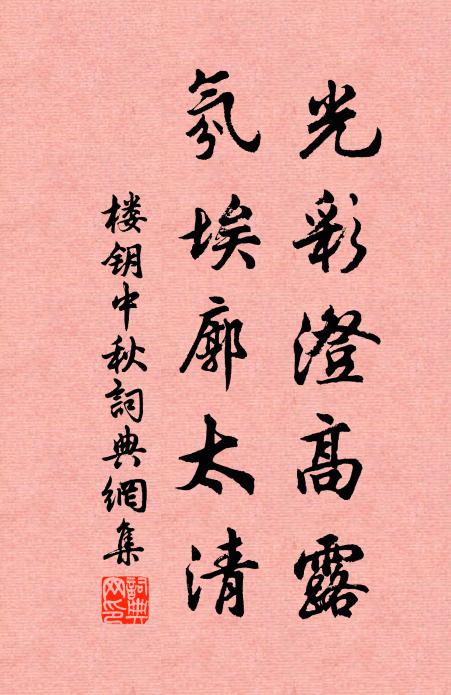 光彩澄高露
氛埃廓太清
楼钥中秋詞典網集
詞典網印